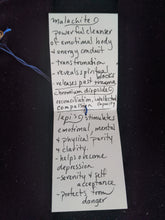 malachite
powerful cleanser
of emotional body
& energy conduit
- transformation
- reveals spiritual
blocks
releases past traumas
chromium diopside
reconciliation, intellectual
compassion, capacity
Lapis stimulates
emotional, mental
& physical purity
& clarity.
- helps overcome
depression
- serenity & self
acceptance
- protects from
danger